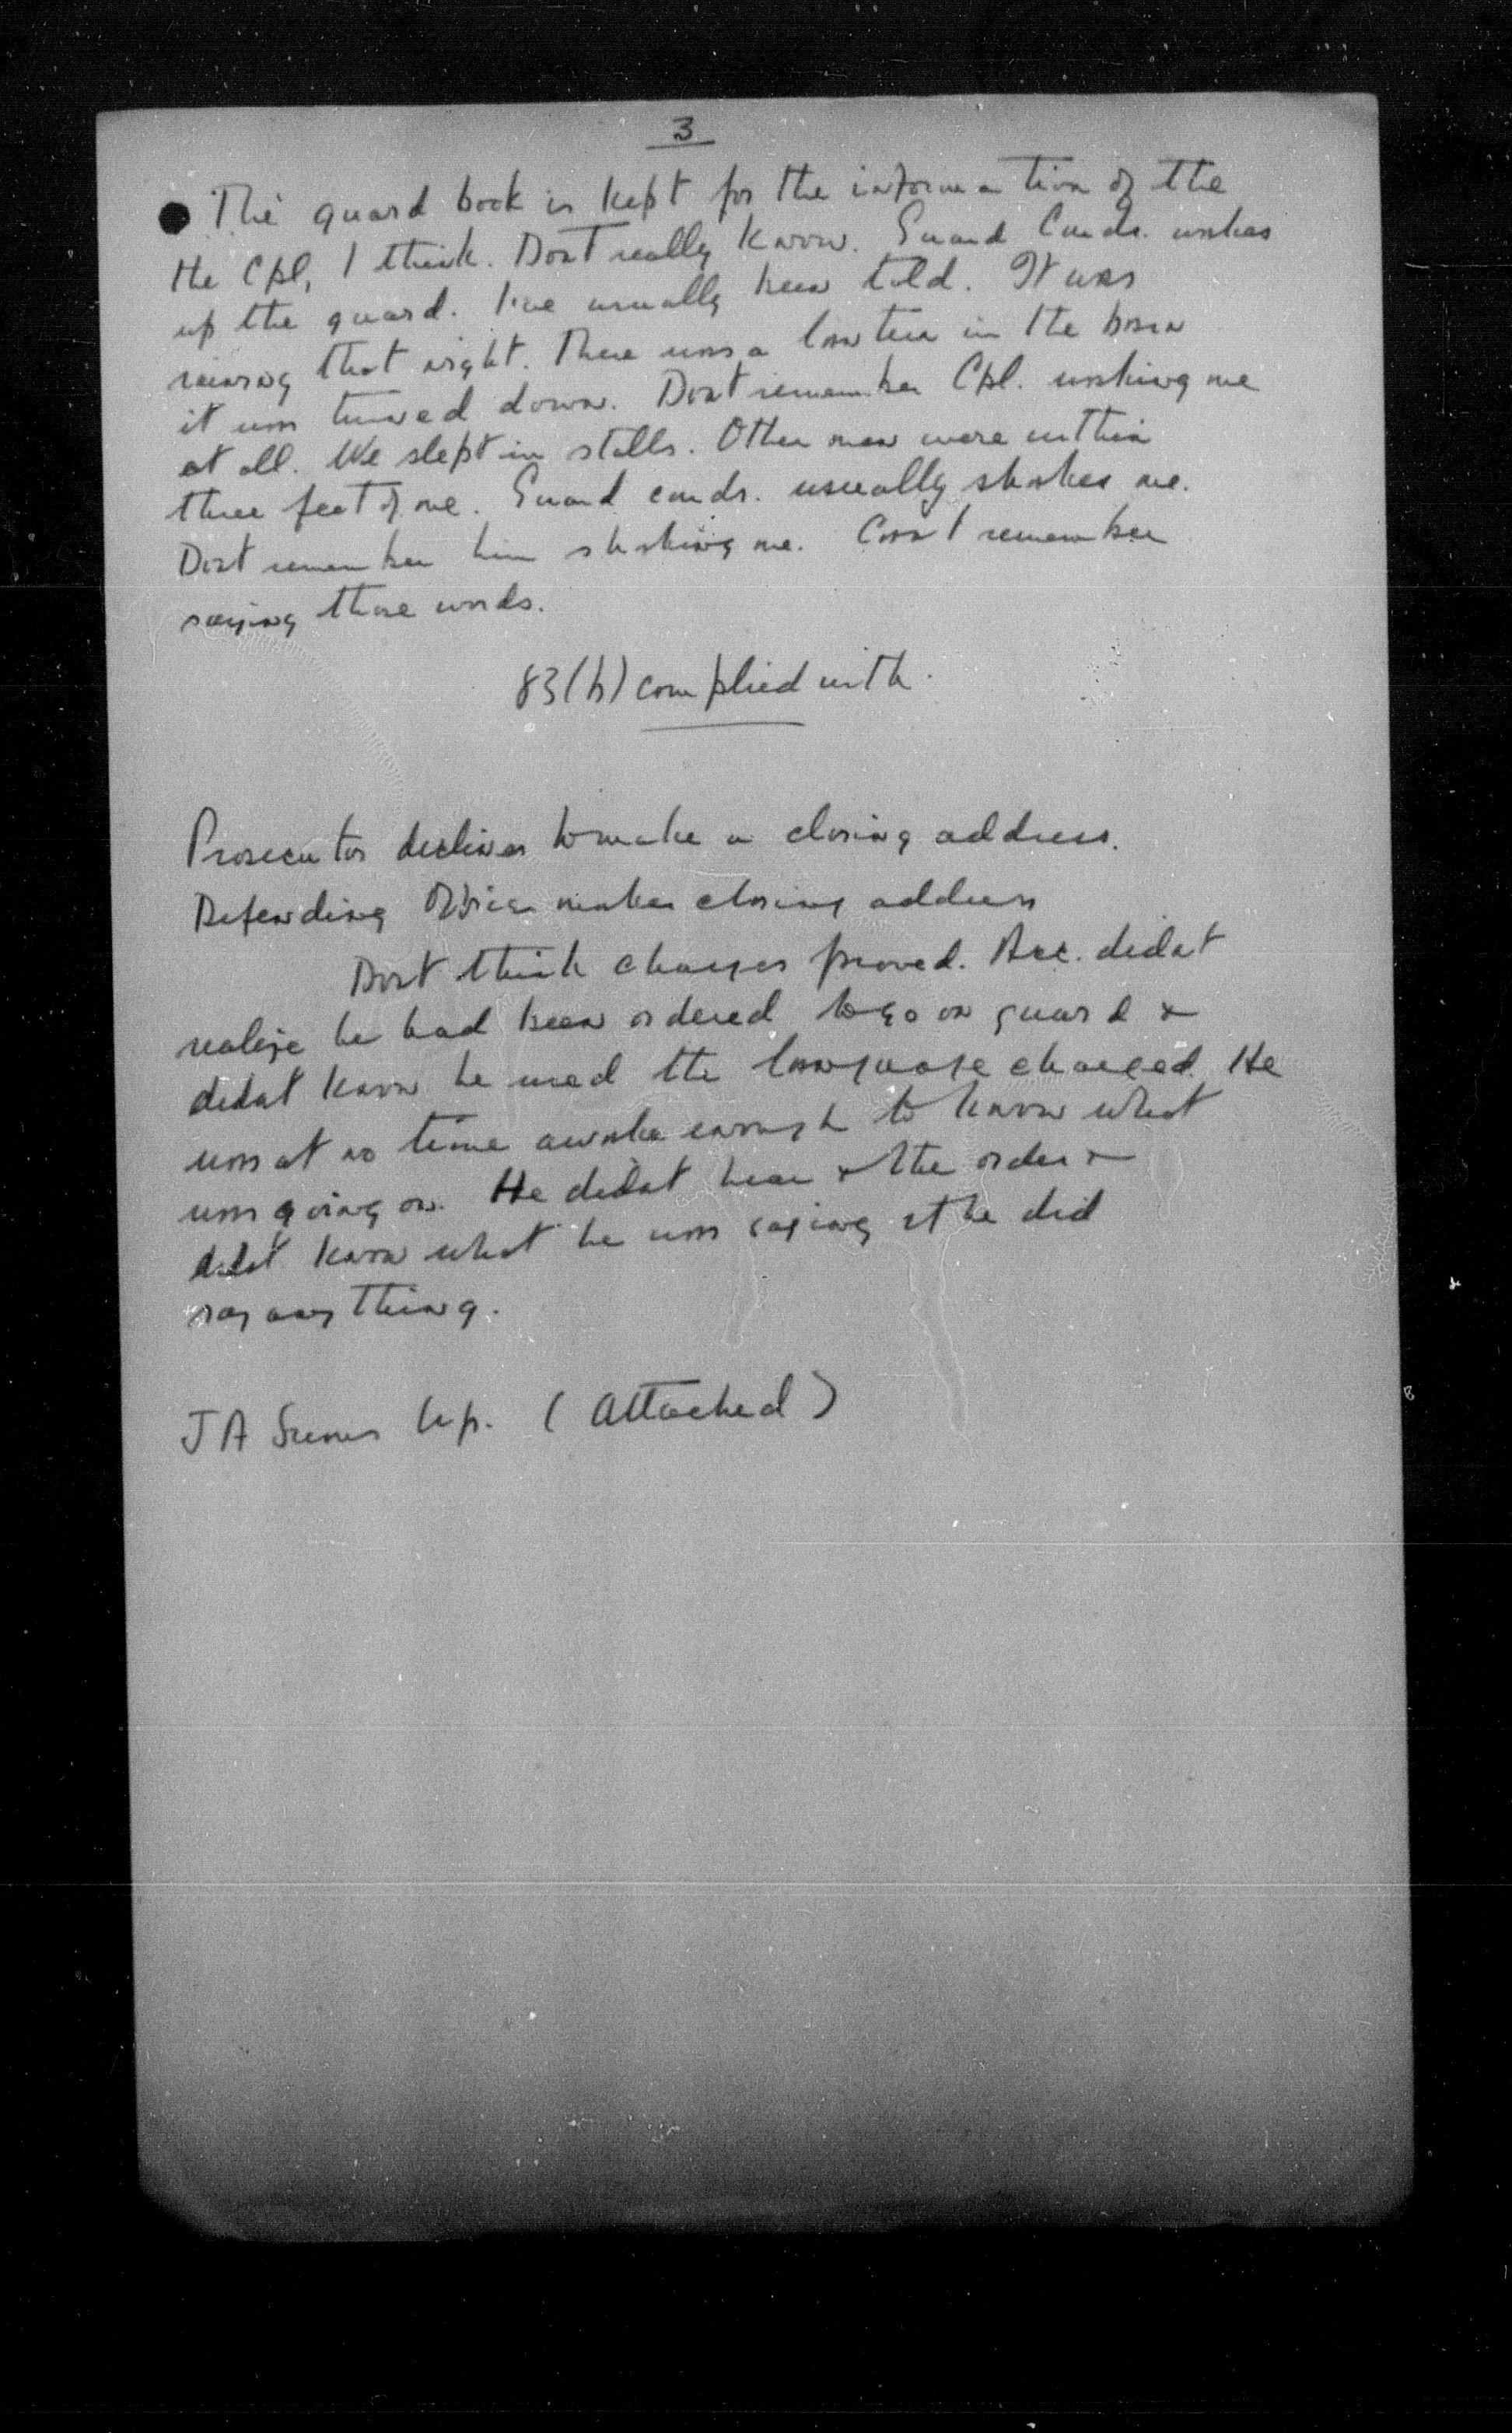 3
The guard book is kept for the information of the
the Cpl, I think. Dont really know. Guard Comdr. wakes
up the guard. I've usually been told. It was
raining that night. There was a lantern in the barn
it was turned down. Dont remember Cpl. waking me
at all. We slept in stalls. Other men were within
three feet of me. Guard comdr. usually shakes me.
Dont remember him shaking me. Cant remember
saying those words.
83(b) complied with.
Prosecutor declines to make a closing address.
Defending Officer makes closing address
Dont think charges proved. Acc. didnt
realize he had been ordered to go on guard &
didnt know he used the language charged. He
was at no time awake enough to know what
was going on. He didnt hear the order &
didnt know what he was saying if he did
say anything.
JA Sums Up. (Attached)